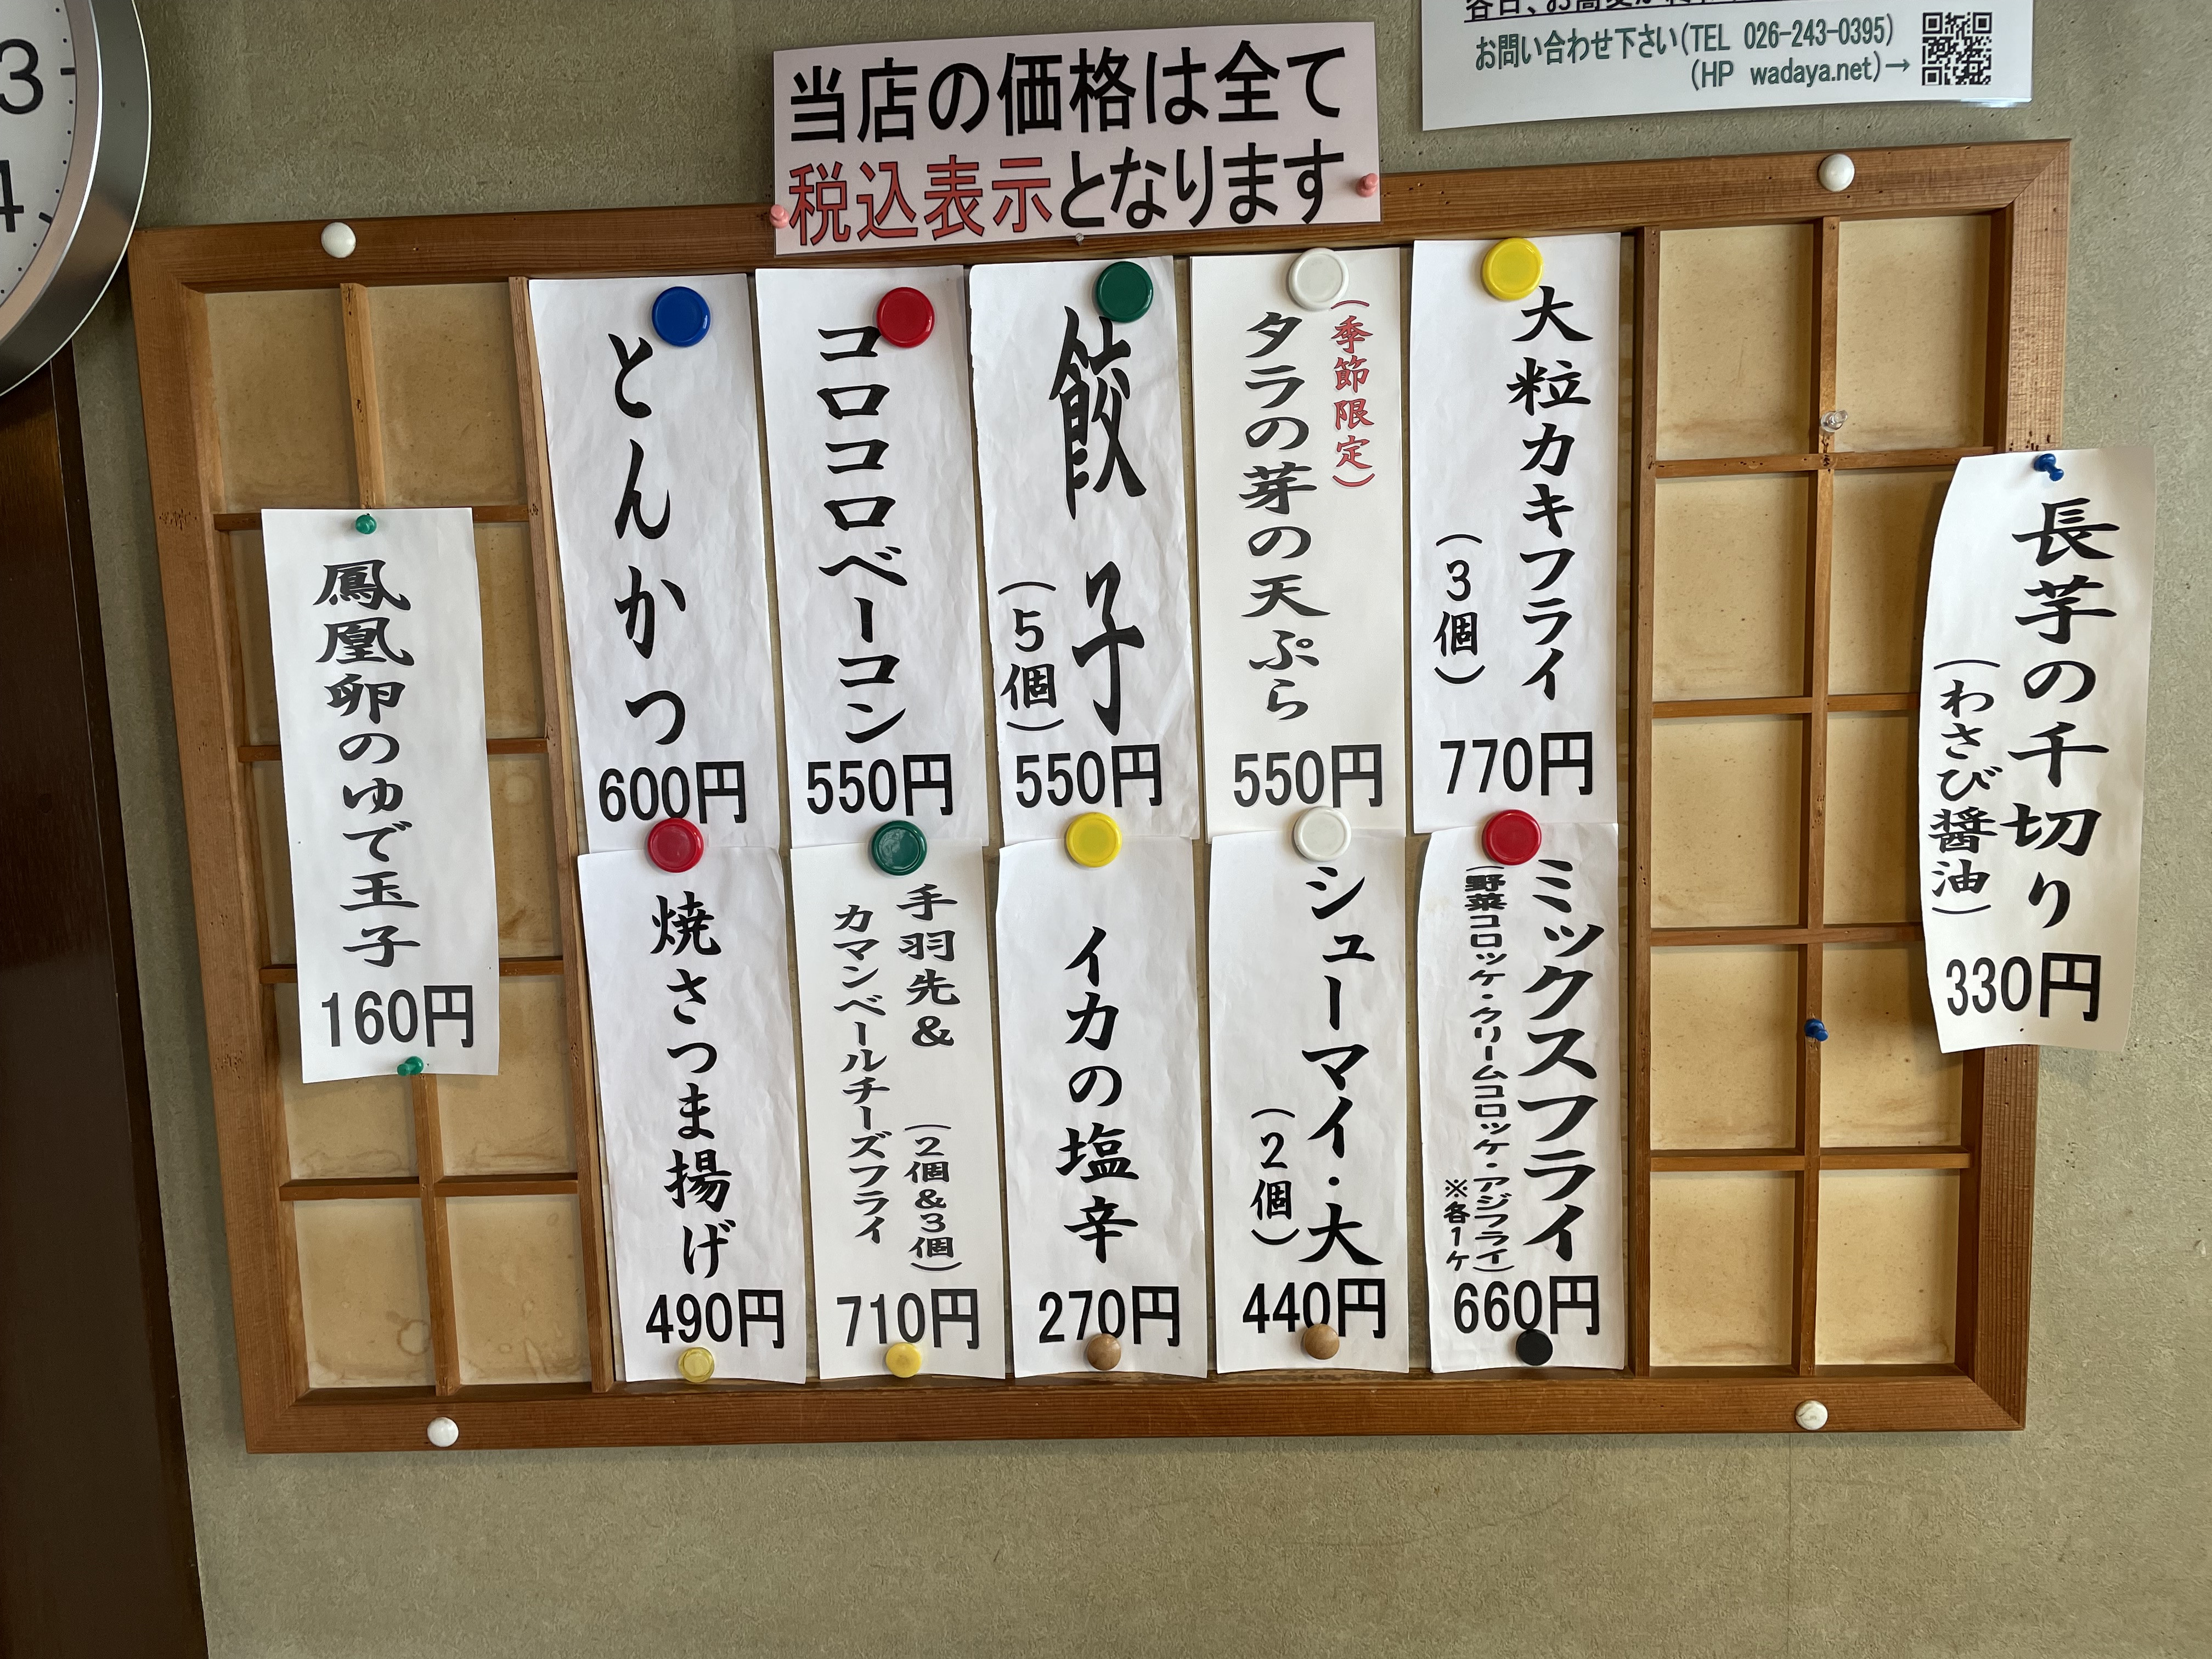 お問い合わせ下さい(TEL 026-243-0395)
(HP wadaya.net)→
当店の価格は全て
税込表示となります
大粒カキフライ
(3個)
770円
(季節限定)
タラの芽の天ぷら
550円
餃子
(5個)
550円
コロコロベーコン
550円
とんかつ
600円
ミックスフライ
(野菜コロッケ・クリームコロッケ・アジフライ)
※各1ケ
660円
シューマイ・大
(2個)
440円
イカの塩辛
270円
手羽先&
(2個&3個)
カマンベールチーズフライ
710円
焼さつま揚げ
490円
長芋の千切り
(わさび醤油)
330円
鳳凰卵のゆで玉子
160円
3
4